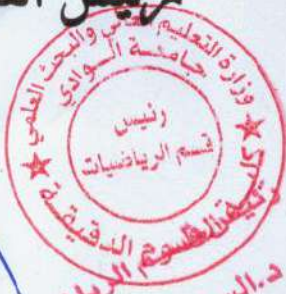 رئيس
وزارة التعليم العالي والبحث العلمي
جامعة الوادي
رئيس
قسم الرياضيات
كلية العلوم الدقيقة